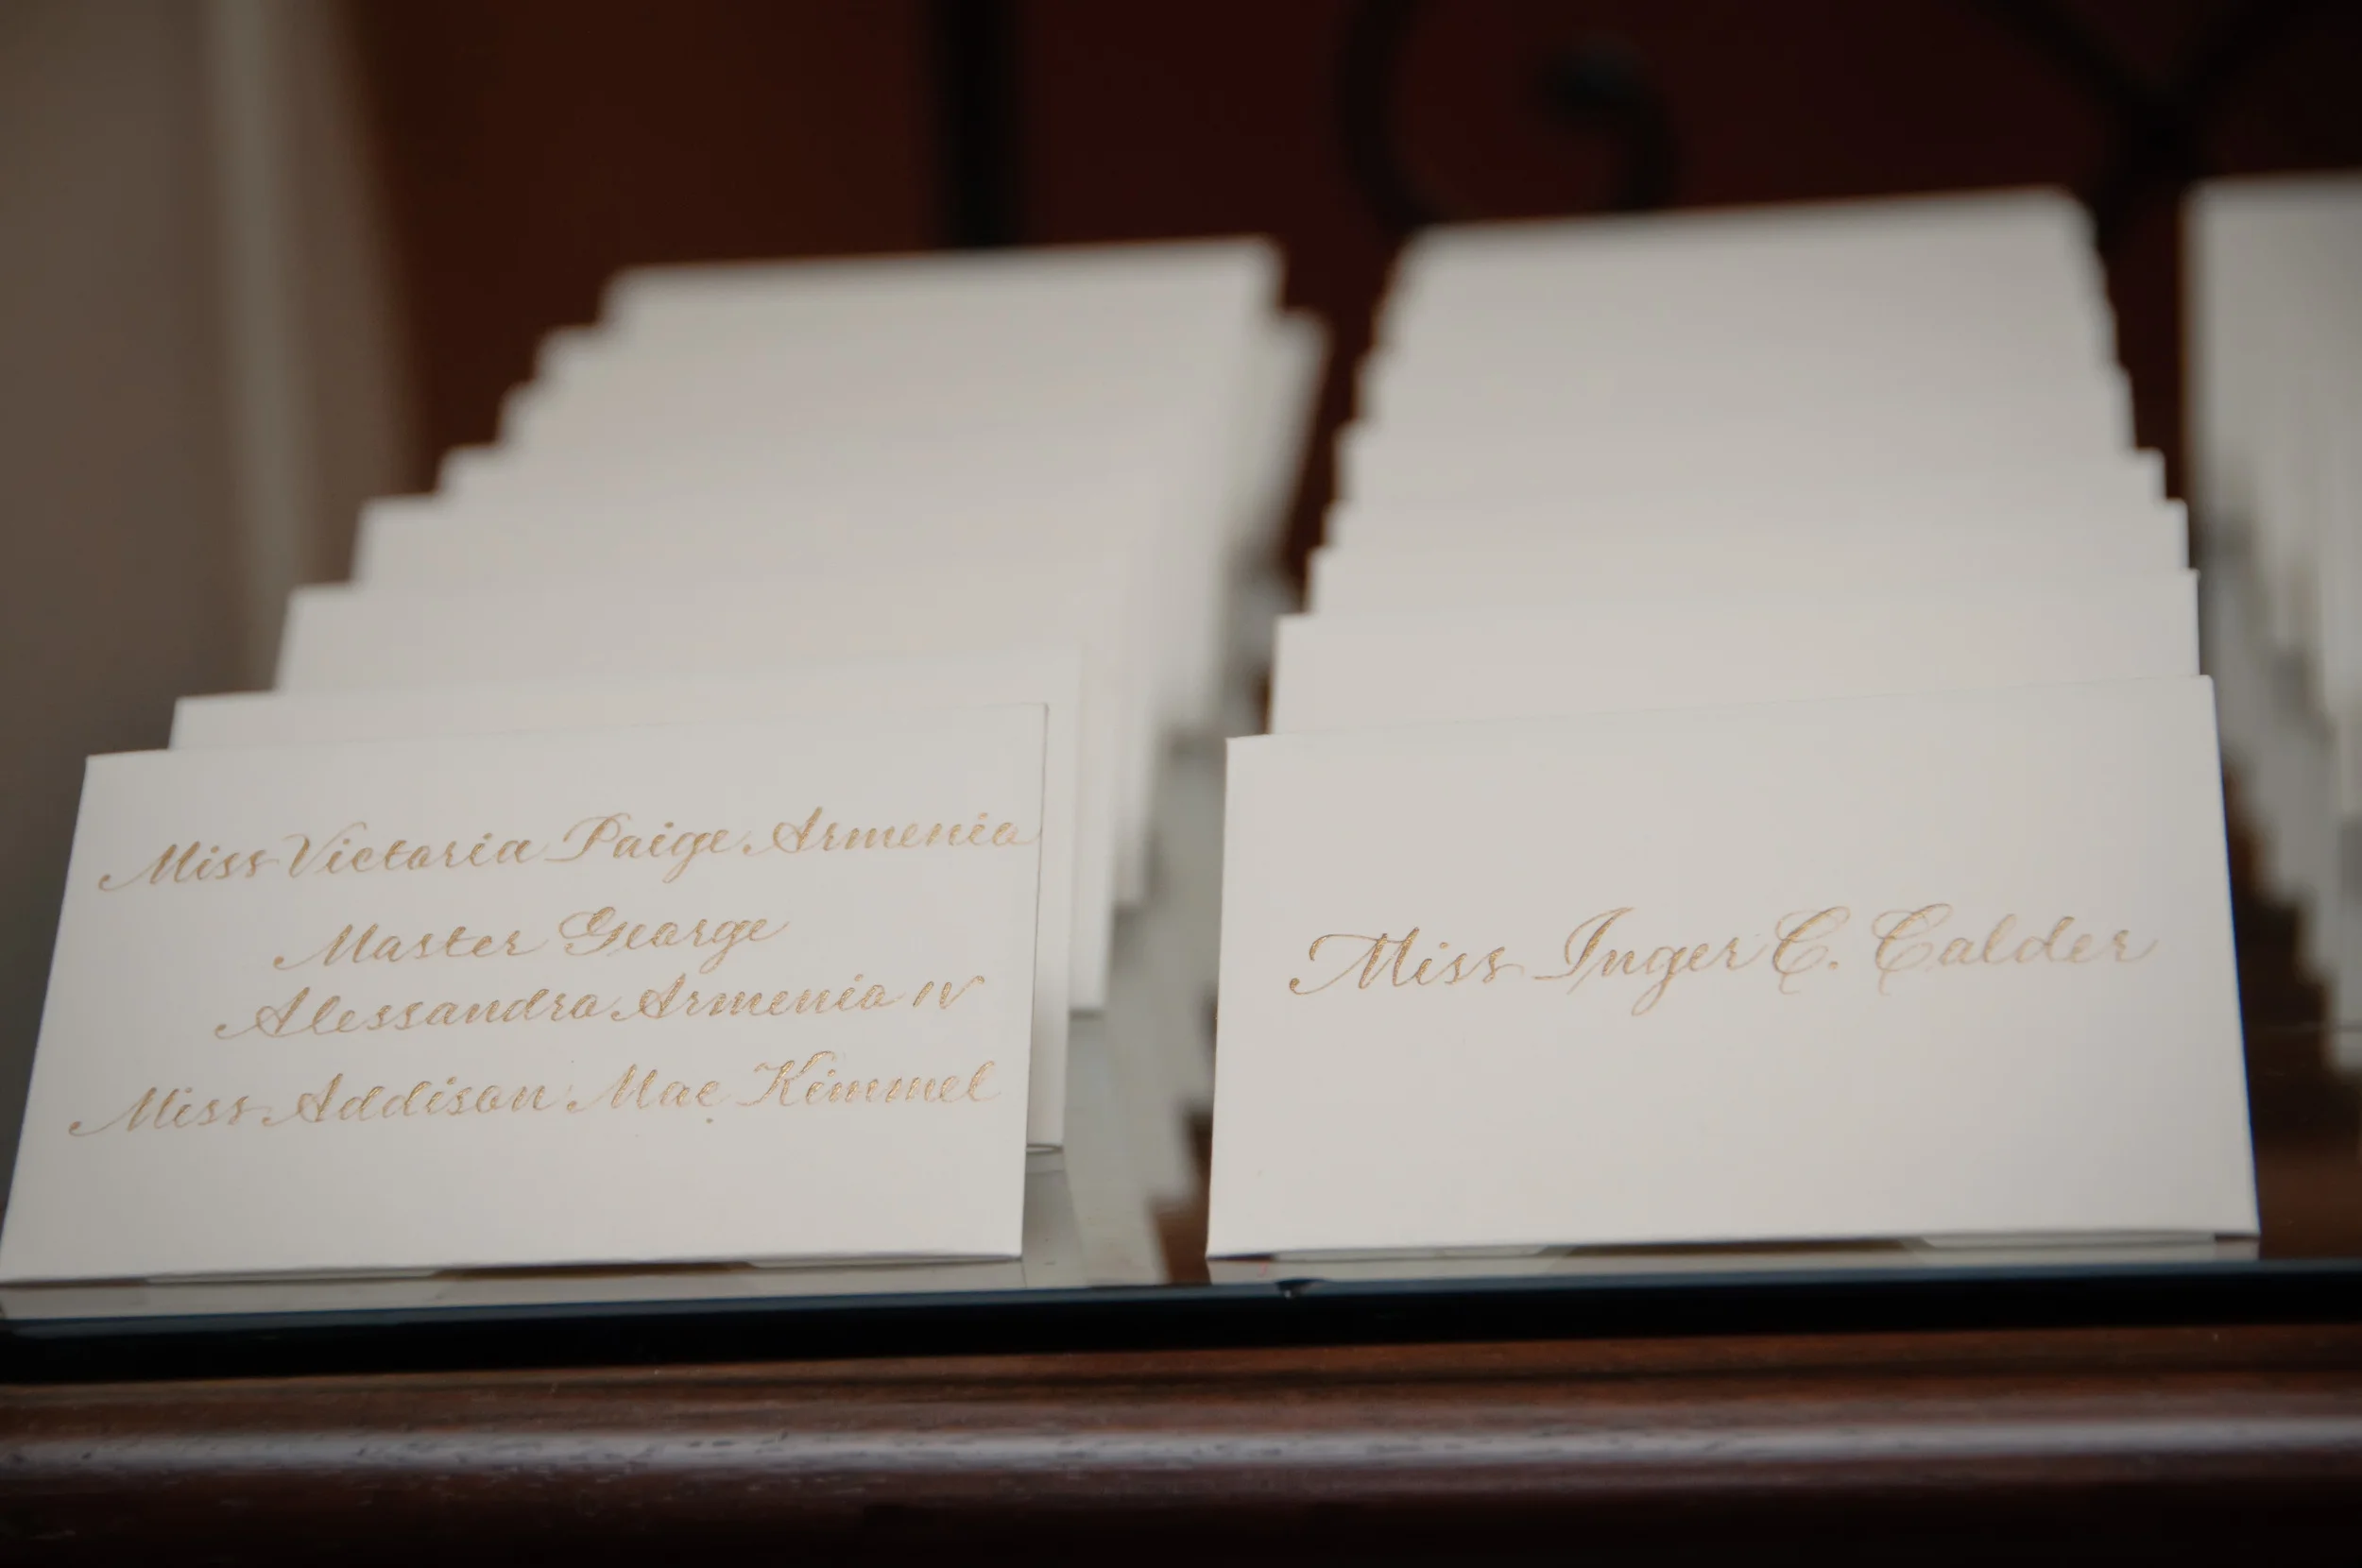 Miss Victoria Paige Armenia
Master George
Alessandro Armenia IV
Miss Addison Mae Kimmel
Miss Inger C. Calder